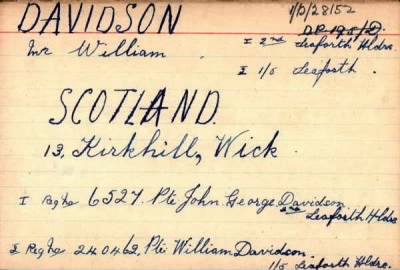 DAVIDSON
1/D/28152
DR 195/D.
Mr William.
I 2nd Seaforth Hldrs.
II 1/5 Seaforth.
SCOTLAND.
13, Kirkhill, Wick.
I Reg No 6527. Pte John George Davidson
2nd Seaforth Hldrs
II Reg No 240462, Pte William Davidson.
1/5 Seaforth Hldrs.